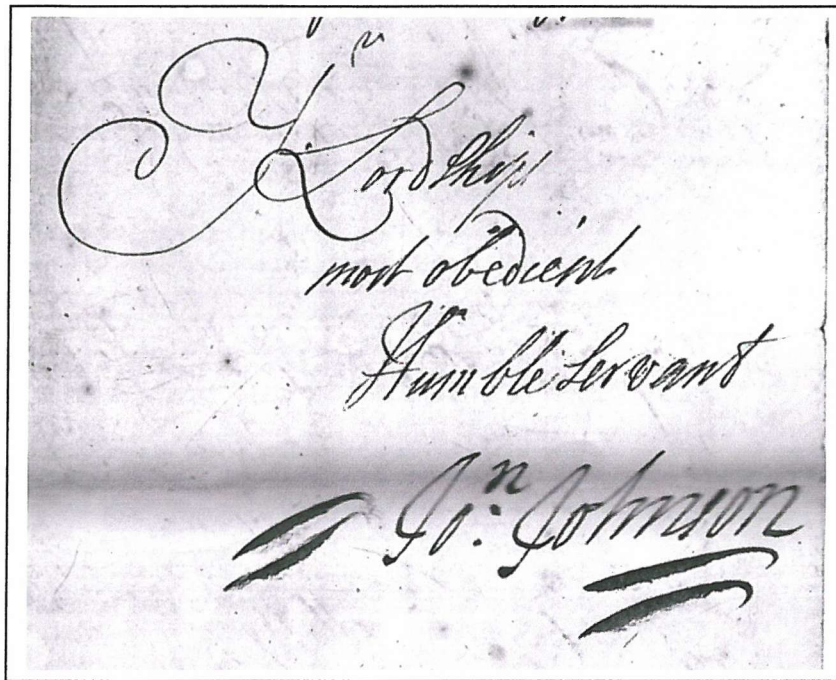 Yr. Lordships
most obedient
Humble Servant
Jon. Johnson